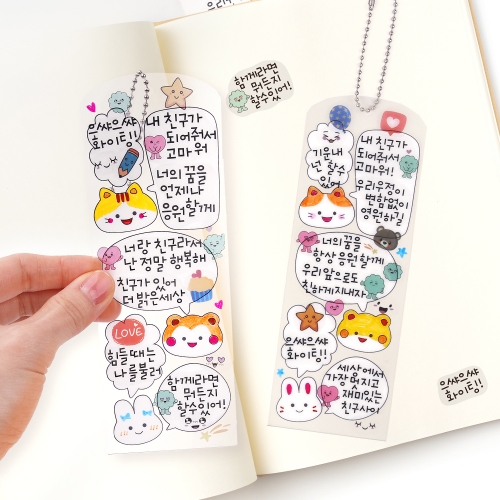 함께라면
뭐든지
할수있어!
으쌰으쌰
화이팅!
내 친구가
되어줘서
고마워
너의 꿈을
언제나
응원할게
너랑 친구라서
난 정말 행복해
친구가 있어
더 밝은세상
LOVE
힘들때는
나를불러
함께라면
뭐든지
할수있어!
기운내
넌 할수
있어
내 친구가
되어줘서
고마워!
우리우정이
변함없이
영원하길
너의꿈을
항상 응원할게
우리앞으로도
친하게지내자
으쌰으쌰
화이팅!
세상에서
가장 멋지고
재미있는
친구사이
으쌰으쌰
화이팅!